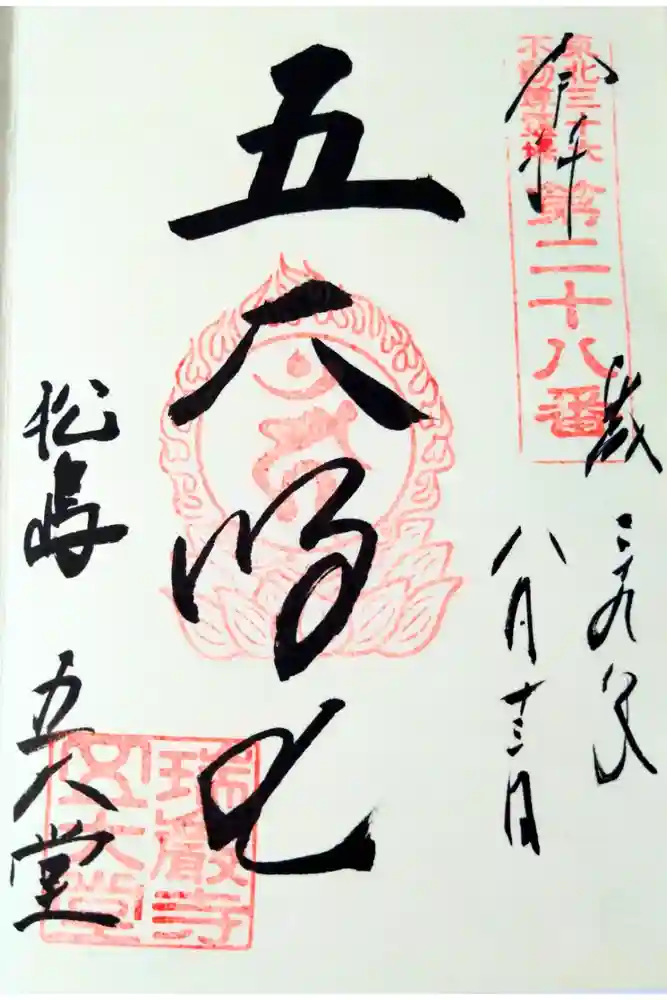 奉拝
東北三十六
不動尊霊場
第二十八番
歳
八月十三日
五大明王
松島 五大堂
瑞巌寺
五大堂